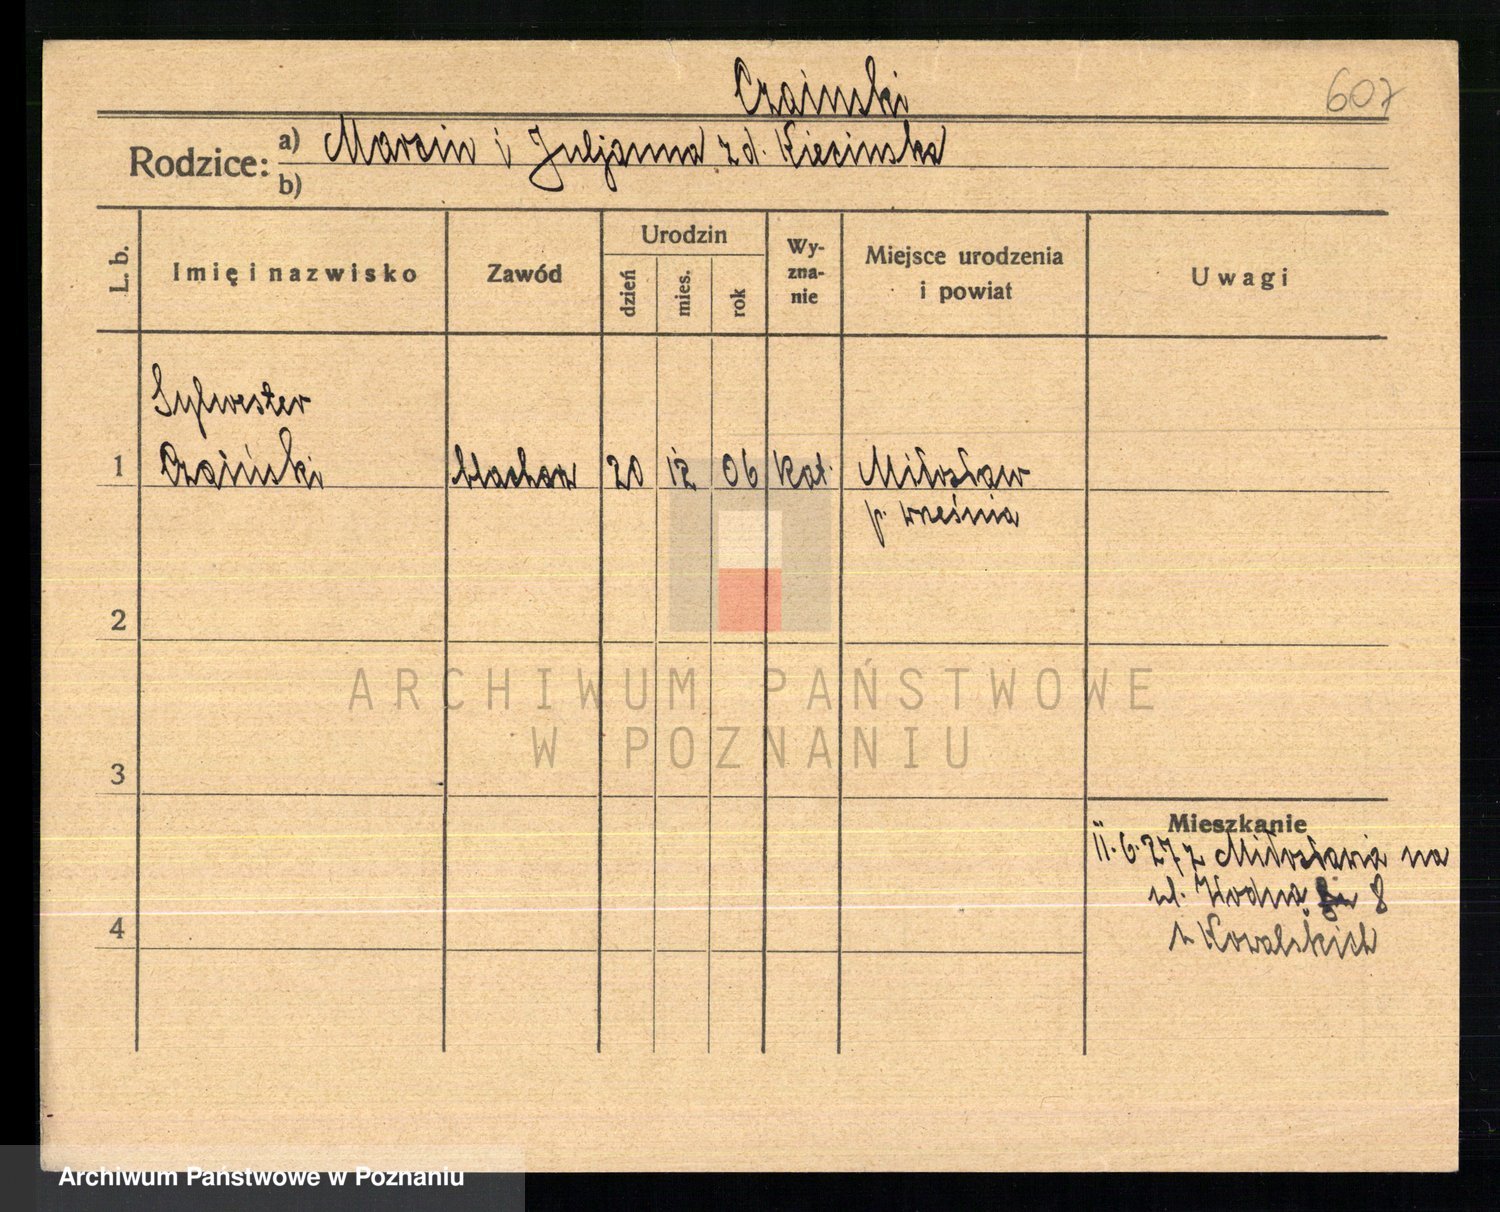 Czaiński
607
Rodzice: a) Marcin i Juljanna z d. Kiecińska
b)
L. b.
Imię i nazwisko
Zawód
Urodzin
dzień
mies.
rok
Wy-
zna-
nie
Miejsce urodzenia
i powiat
Uwagi
Sylwester
1 Czaiński blacharz 20 12 06 kat. Miłosław
p. Wreśnia
2
ARCHIWUM PAŃSTWOWE
W POZNANIU
3
Mieszkanie
11.6.27 z Miłosławia na
ul. Wodna 8
Kowalskich
4
Archiwum Państwowe w Poznaniu